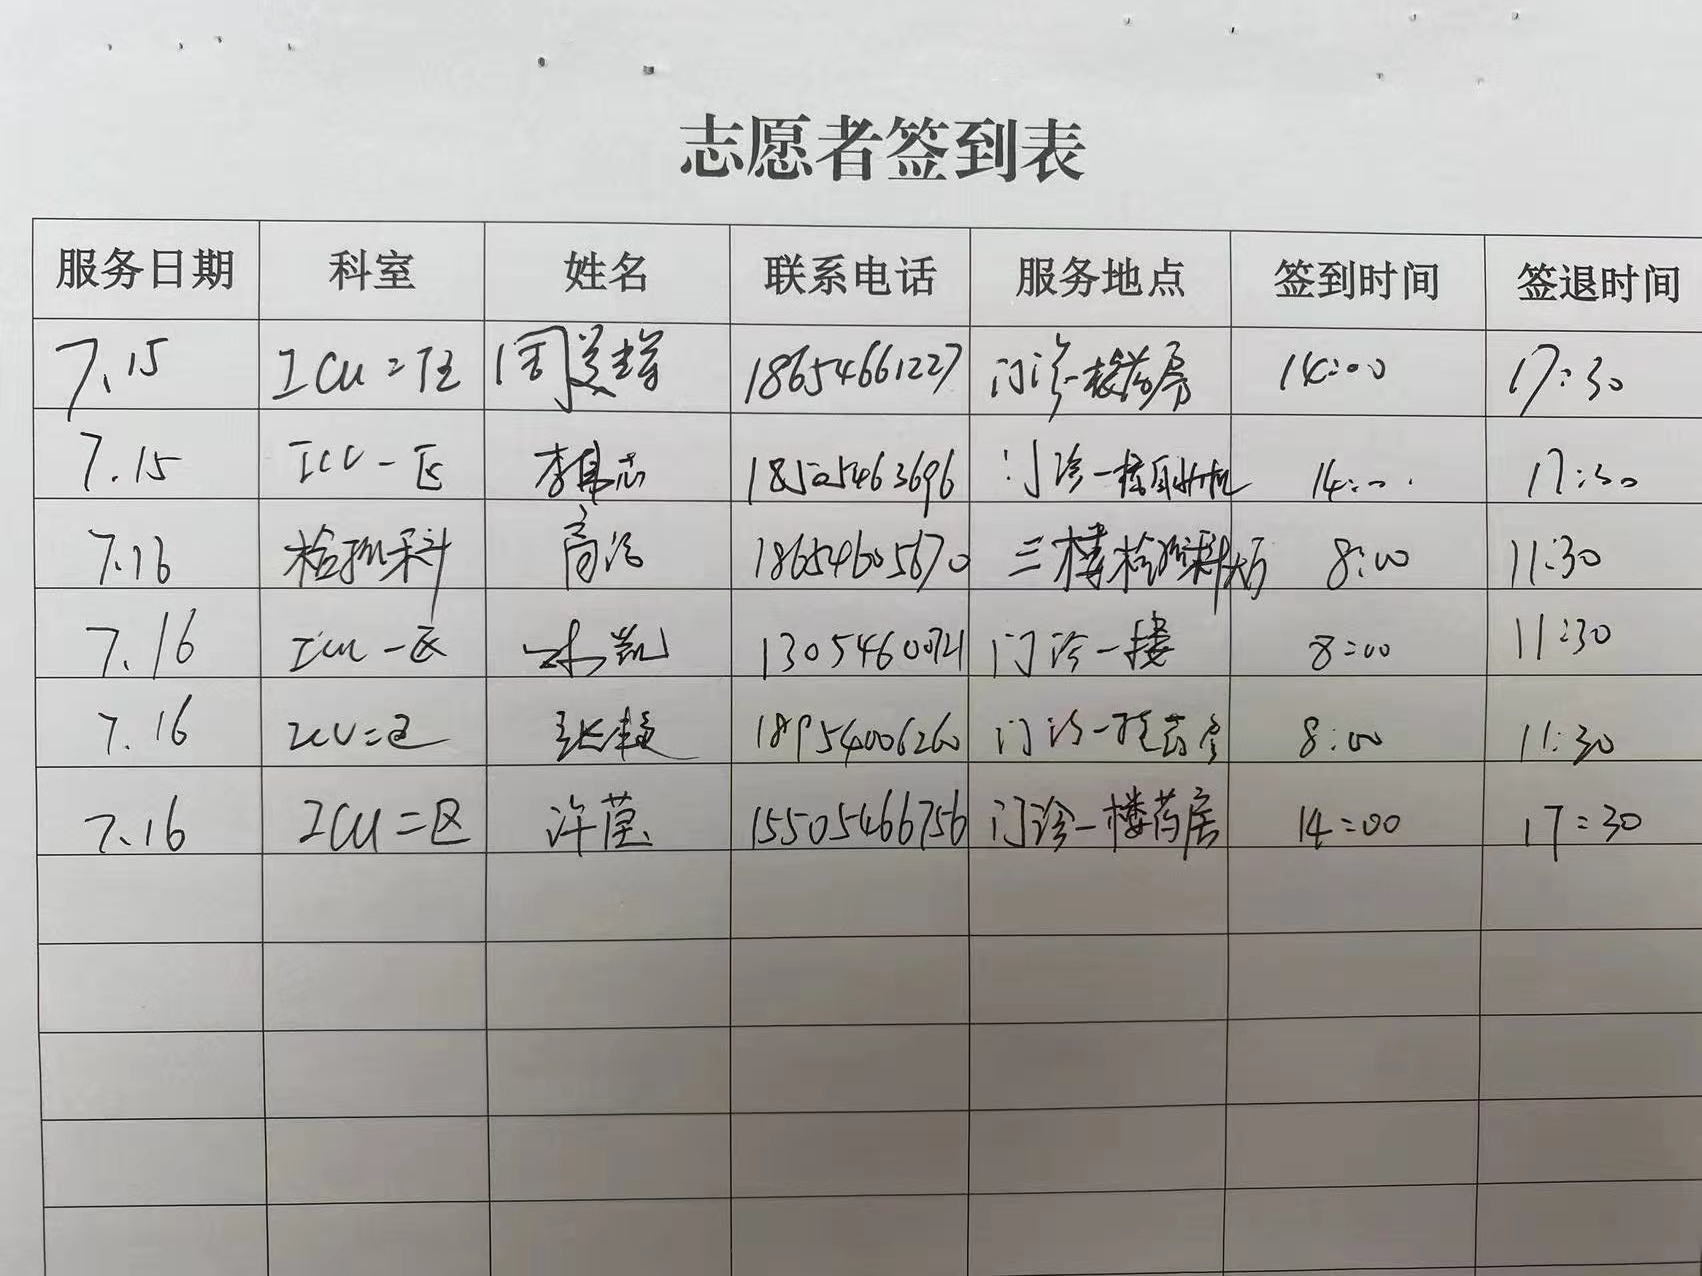 志愿者签到表
服务日期 科室 姓名 联系电话 服务地点 签到时间 签退时间
7.15 ICU二区 18654661227 门诊一楼药房 14:00 17:30
7.15 ICU一区 门诊一楼 14:00 17:30
7.16 检验科 18654605670 三楼检验科 8:00 11:30
7.16 ICU一区 凯 门诊一楼 8:00 11:30
7.16 ICU二区 张 18954006260 门诊一楼药房 8:00 11:30
7.16 ICU二区 许莹 15505466756 门诊一楼药房 14:00 17:30